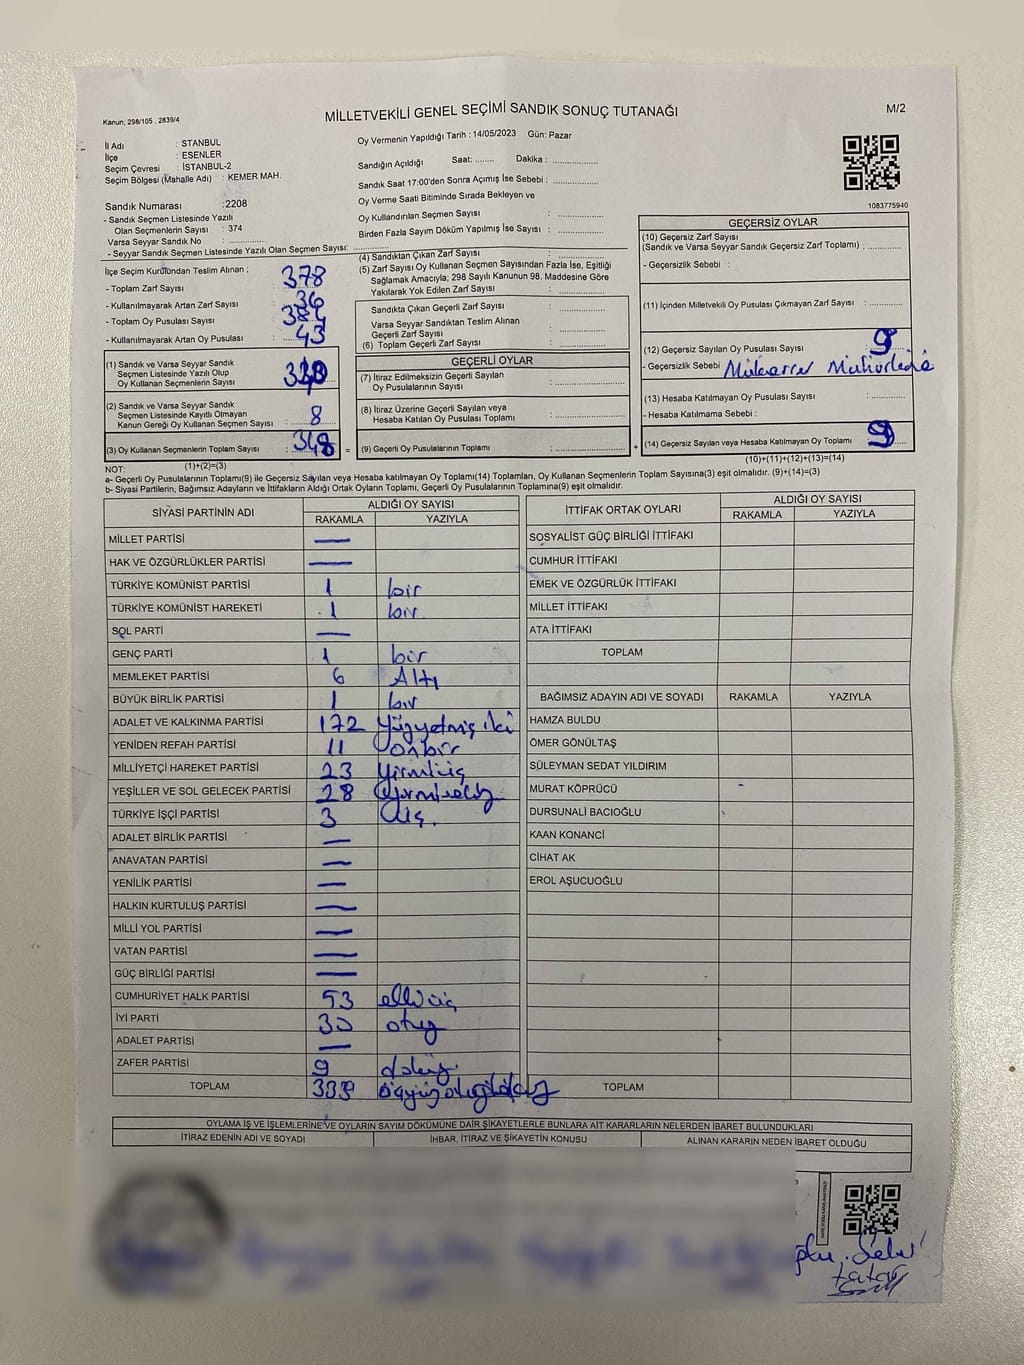 MİLLETVEKİLİ GENEL SEÇİMİ SANDIK SONUÇ TUTANAĞI
M/2
Kanun: 298/105 , 2839/4
İl Adı : STANBUL
İlçe : ESENLER
Seçim Çevresi : İSTANBUL-2
Seçim Bölgesi (Mahalle Adı) : KEMER MAH.
Sandık Numarası :2208
- Sandık Seçmen Listesinde Yazılı
Olan Seçmenlerin Sayısı : 374
Varsa Seyyar Sandık No : ..............
- Seyyar Sandık Seçmen Listesinde Yazılı Olan Seçmen Sayısı: ..............
Oy Vermenin Yapıldığı Tarih : 14/05/2023 Gün: Pazar
Sandığın Açıldığı Saat: ........ Dakika : ..............
Sandık Saat 17:00'den Sonra Açımış İse Sebebi : ..............
Oy Verme Saati Bitiminde Sırada Bekleyen ve
Oy Kullandırılan Seçmen Sayısı : ..............
Birden Fazla Sayım Döküm Yapılmış İse Sayısı : ..............
1083775940
İlçe Seçim Kurulundan Teslim Alınan ;
- Toplam Zarf Sayısı : 378
- Kullanılmayarak Artan Zarf Sayısı : 36
- Toplam Oy Pusulası Sayısı :
- Kullanılmayarak Artan Oy Pusulası : 43
(1) Sandık ve Varsa Seyyar Sandık
Seçmen Listesinde Yazılı Olup
Oy Kullanan Seçmenlerin Sayısı :
(2) Sandık ve Varsa Seyyar Sandık
Seçmen Listesinde Kayıtlı Olmayan
Kanun Gereği Oy Kullanan Seçmen Sayısı : 8
(3) Oy Kullanan Seçmenlerin Toplam Sayısı : 348 =
(1)+(2)=(3)
(4) Sandıktan Çıkan Zarf Sayısı : ..............
(5) Zarf Sayısı Oy Kullanan Seçmen Sayısından Fazla İse, Eşitliği
Sağlamak Amacıyla; 298 Sayılı Kanunun 98. Maddesine Göre
Yakılarak Yok Edilen Zarf Sayısı : ..............
Sandıkta Çıkan Geçerli Zarf Sayısı : ..............
Varsa Seyyar Sandıktan Teslim Alınan
Geçerli Zarf Sayısı : ..............
(6) Toplam Geçerli Zarf Sayısı : ..............
GEÇERLİ OYLAR
(7) İtiraz Edilmeksizin Geçerli Sayılan
Oy Pusulalarının Sayısı : ..............
(8) İtiraz Üzerine Geçerli Sayılan veya
Hesaba Katılan Oy Pusulası Toplamı : ..............
(9) Geçerli Oy Pusulalarının Toplamı : .............. +
GEÇERSİZ OYLAR
(10) Geçersiz Zarf Sayısı
(Sandık ve Varsa Seyyar Sandık Geçersiz Zarf Toplamı) : ..........
- Geçersizlik Sebebi :
(11) İçinden Milletvekili Oy Pusulası Çıkmayan Zarf Sayısı : ..........
(12) Geçersiz Sayılan Oy Pusulası Sayısı : 9
- Geçersizlik Sebebi
(13) Hesaba Katılmayan Oy Pusulası Sayısı : ..........
- Hesaba Katılmama Sebebi :
(14) Geçersiz Sayılan veya Hesaba Katılmayan Oy Toplamı : 9
(10)+(11)+(12)+(13)=(14)
NOT:
a- Geçerli Oy Pusulalarının Toplamı(9) ile Geçersiz Sayılan veya Hesaba katılmayan Oy Toplamı(14) Toplamları, Oy Kullanan Seçmenlerin Toplam Sayısına(3) eşit olmalıdır. (9)+(14)=(3)
b- Siyasi Partilerin, Bağımsız Adayların ve İttifakların Aldığı Ortak Oyların Toplamı, Geçerli Oy Pusulalarının Toplamına(9) eşit olmalıdır.
SİYASİ PARTİNİN ADI ALDIĞI OY SAYISI
RAKAMLA YAZIYLA
MİLLET PARTİSİ —
HAK VE ÖZGÜRLÜKLER PARTİSİ —
TÜRKİYE KOMÜNİST PARTİSİ 1 bir
TÜRKİYE KOMÜNİST HAREKETİ 1 bir
SOL PARTİ —
GENÇ PARTİ 1 bir
MEMLEKET PARTİSİ 6 Altı
BÜYÜK BİRLİK PARTİSİ 1 bir
ADALET VE KALKINMA PARTİSİ 172 Yüzyetmiş iki
YENİDEN REFAH PARTİSİ 11 onbir
MİLLİYETÇİ HAREKET PARTİSİ 23 Yirmiüç
YEŞİLLER VE SOL GELECEK PARTİSİ 28 Yirmisekiz
TÜRKİYE İŞÇİ PARTİSİ 3 üç.
ADALET BİRLİK PARTİSİ —
ANAVATAN PARTİSİ —
YENİLİK PARTİSİ —
HALKIN KURTULUŞ PARTİSİ —
MİLLİ YOL PARTİSİ —
VATAN PARTİSİ —
GÜÇ BİRLİĞİ PARTİSİ —
CUMHURİYET HALK PARTİSİ 53 elliüç
İYİ PARTİ 30 otuz
ADALET PARTİSİ —
ZAFER PARTİSİ 9 dokuz.
TOPLAM 339 üçyüzotuzdokuz
İTTİFAK ORTAK OYLARI ALDIĞI OY SAYISI
RAKAMLA YAZIYLA
SOSYALİST GÜÇ BİRLİĞİ İTTİFAKI
CUMHUR İTTİFAKI
EMEK VE ÖZGÜRLÜK İTTİFAKI
MİLLET İTTİFAKI
ATA İTTİFAKI
TOPLAM
BAĞIMSIZ ADAYIN ADI VE SOYADI RAKAMLA YAZIYLA
HAMZA BULDU
ÖMER GÖNÜLTAŞ
SÜLEYMAN SEDAT YILDIRIM
MURAT KÖPRÜCÜ
DURSUNALİ BACIOĞLU
KAAN KONANCİ
CİHAT AK
EROL AŞUCUOĞLU
TOPLAM
OYLAMA İŞ VE İŞLEMLERİNE VE OYLARIN SAYIM DÖKÜMÜNE DAİR ŞİKAYETLERLE BUNLARA AİT KARARLARIN NELERDEN İBARET BULUNDUKLARI
İTİRAZ EDENİN ADI VE SOYADI İHBAR, İTİRAZ VE ŞİKAYETİN KONUSU ALINAN KARARIN NEDEN İBARET OLDUĞU